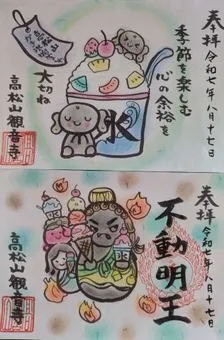 奉拝 令和六年八月十七日
季節を楽しむ
心の余裕を
大切ね
氷
高松山観音寺
奉拝 令和六年八月十七日
不動明王
氷
高松山観音寺